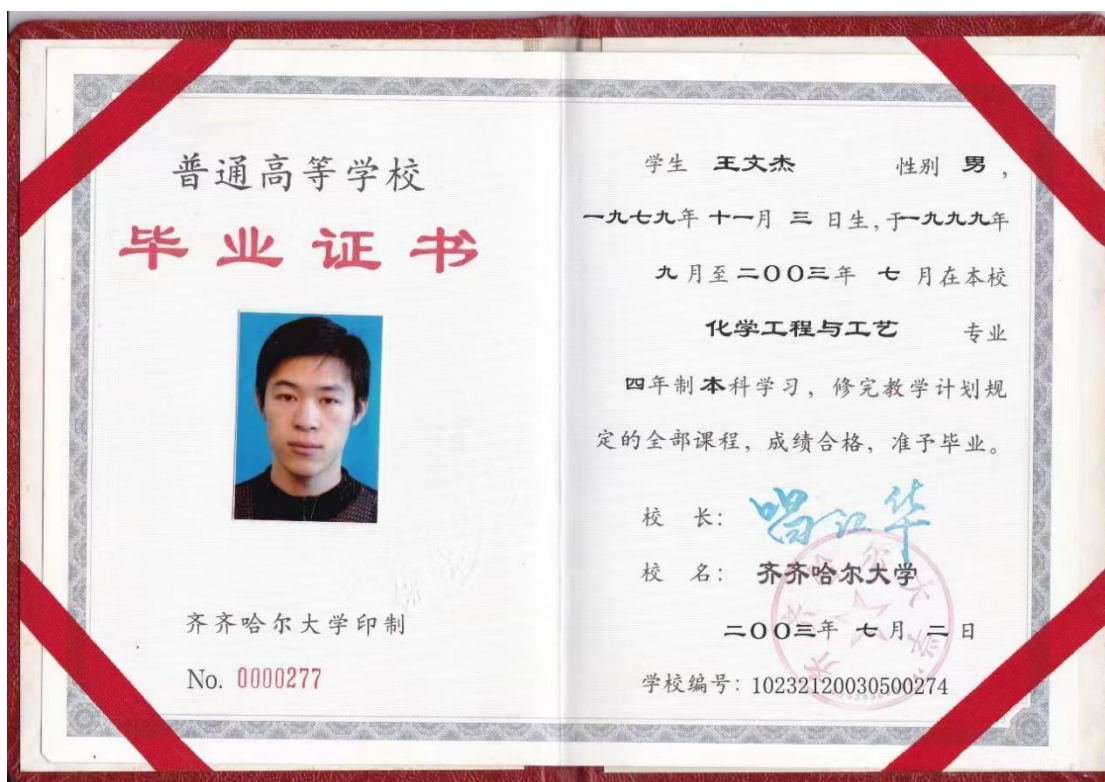 普通高等学校
毕业证书
齐齐哈尔大学印制
No. 0000277
学生 王文杰 性别 男，
一九七九年 十一月 三 日生，于一九九九年
九 月至二〇〇三年 七 月在本校
化学工程与工艺 专业
四年制本科学习，修完教学计划规
定的全部课程，成绩合格，准予毕业。
校 长：
校 名： 齐齐哈尔大学
二〇〇三年 七 月 二 日
学校编号：10232120030500274